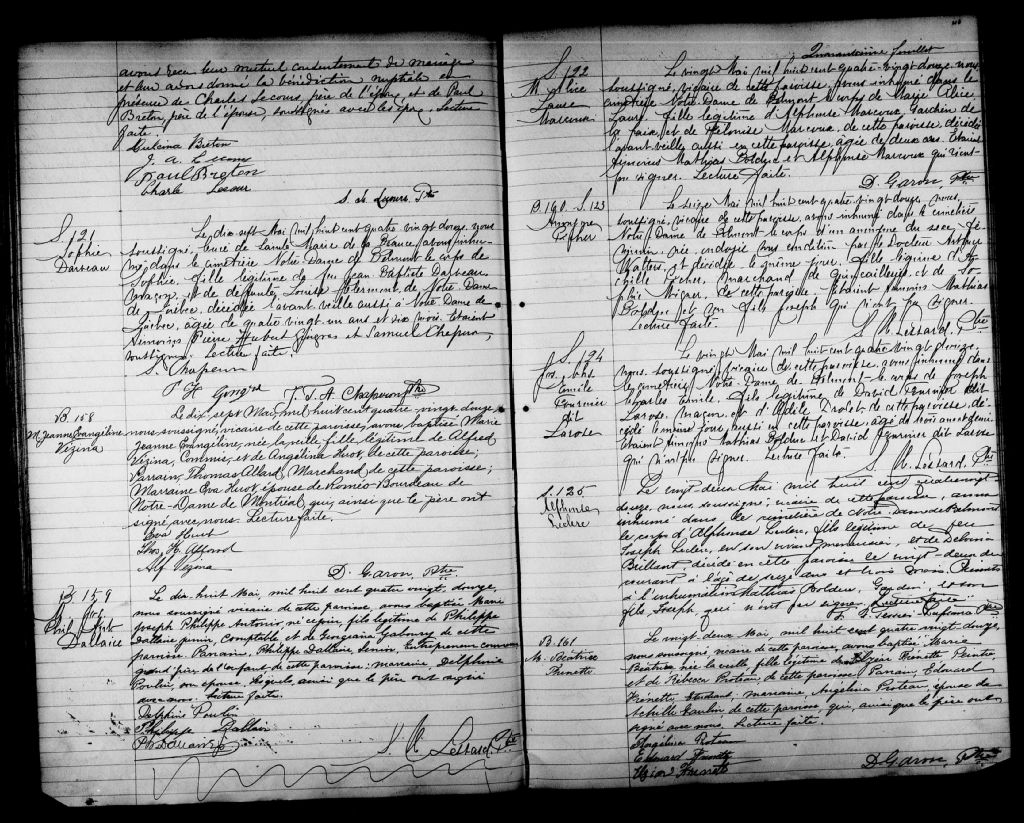 avons reçu leur mutuel consentement de mariage
et leur avons donné la bénédiction nuptiale en
présence de Charles Lecours, père de l'époux et de Paul
Breton, père de l'épouse, soussignés avec les époux. Lecture
faite.
Breton
Paul Breton
Ptre
S. 121
Sophie
Darbeau
Le dix sept Mai, mil huit cent quatre vingt douze, nous
soussigné, curé de Sainte Marie de la Beauce, avons inhu-
mé, dans le cimetière Notre Dame de Belmont le corps de
Sophie, fille légitime de feu Jean Baptiste Darbeau,
maçon, et de défunte Louise de Notre Dame
de Québec, décédée l'avant veille aussi à Notre Dame de
Québec, âgée de quatre vingt un ans et dix mois. Etaient
témoins Pierre Hubert Gingras et Samuel Chaperon,
soussignés. Lecture faite.
S. Chaperon
P H Ging
J. A. Chaperon Ptre
B. 158
M. Jeanne Evangéline
Vézina
Le dix sept Mai, mil huit cent quatre vingt douze,
nous soussigné, vicaire de cette paroisse, avons baptisé Marie
Jeanne Evangéline, née la veille, fille légitime de Alfred
Vézina, Commis, et de Angélina Huot, de cette paroisse;
Parrain, Thomas Allard, Marchand de cette paroisse;
Marraine Eva Huot, épouse de Roméo Bourdeau de
Notre-Dame de Montréal qui, ainsi que le père ont
signé avec nous. Lecture faite.
Eva Huot
Thos. H. Allard
Alf Vezina
D. Garon, Ptre
B. 159
Jos.
Phil.
Dallaire
Le dix huit Mai, mil huit cent quatre vingt, douze,
nous soussigné vicaire de cette paroisse, avons baptisé Marie
Joseph Philippe Antonio, né ce jour, fils légitime de Philippe
Dallaire junior, Comptable et de Georgiana Gaboury de cette
paroisse. Parrain, Philippe Dallaire Senior, Entrepreneur
grand père de l'enfant de cette paroisse; marraine, Delphine
Poulin, son épouse. Lesquels ainsi que le père ont signé
avec nous. Lecture faite.
Delphine Poulin
Philippe Dallaire
Lessard, Ptre
Quarantième feuillet
S. 122
M. Alice
Laure
Marcoux
Le vingt Mai mil huit cent quatre-vingt douze, nous
soussigné, vicaire de cette paroisse, avons inhumé dans le
cimetière Notre-Dame de Belmont le corps de Marie Alice
Laure, fille légitime d'Alphonse Marcoux, Gardien de
la paix, et de Philomise Marcoux, de cette paroisse, décédée
l'avant veille, aussi en cette paroisse, âgée de deux ans. Etaient
témoins Mathias Bolduc et Alphonse Marcoux qui n'ont
pu signer. Lecture faite.
D. Garon, Ptre
B. 160. S. 123
Anonyme
Le seize Mai mil huit cent quatre vingt douze, nous,
soussigné, vicaire de cette paroisse, avons inhumé dans le cimetière
Notre Dame de Belmont le corps d'un anonyme du sexe fé-
minin, née, ondoyée sous condition par le Docteur Arthur
Watters, et décédée le même jour, fille légitime d'A-
chille Marchand de Quincailleries, et de So-
phie de cette paroisse. Etaient témoins Mathias
Bolduc et son fils Joseph qui n'ont pu signer.
Lecture faite.
Lessard, Ptre
S. 124
Jos. Chs
Emile
Fournier
dit
Larose
Le vingt Mai mil huit cent quatre vingt douze,
nous, soussigné, vicaire de cette paroisse, avons inhumé dans
le cimetière Notre-Dame de Belmont le corps de Joseph
Charles Emile, fils légitime de David Fournier dit
Larose, maçon, et d'Adèle Drolet, de cette paroisse, dé-
cédé aussi en cette paroisse, âgé de trois ans et demi.
Etaient témoins Mathias Bolduc et David Fournier dit Larose
qui n'ont pu signer. Lecture faite.
Lessard, Ptre
S. 125
Alphonse
Leclerc
Le vingt-deux Mai mil huit cent quatre vingt
douze, nous, soussigné, vicaire de cette paroisse, avons
inhumé dans le cimetière de Notre Dame de Belmont
le corps d'Alphonse Leclerc, fils légitime de feu
Joseph Leclerc, en son vivant menuisier, et de
Brillant, décédé en cette paroisse le vingt-deux du
courant à l'âge de seize ans et trois mois. Présents
à l'inhumation Mathias Bolduc, Gardien, et son
fils Joseph, qui n'ont pu signer. Lecture faite.
Ptre
B. 161
M. Béatrice
Frenette
Le vingt deux Mai, mil huit cent quatre vingt douze,
nous soussigné vicaire de cette paroisse, avons baptisé Marie
Béatrice née la veille fille légitime de Frenette, Peintre
et de Rébecca Proteau, de cette paroisse; Parrain, Edouard
Frenette, Etudiant; marraine, Angelina Proteau épouse de
Achille de cette paroisse, qui, ainsi que le père ont
signé avec nous. Lecture faite.
Angelina Proteau
Edouard Frenette
Frenette
D. Garon, Ptre